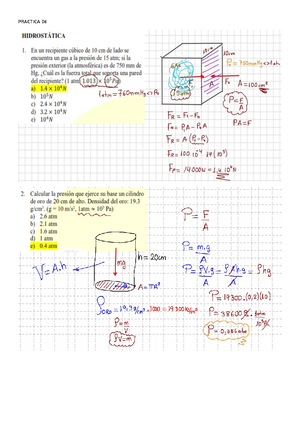 PRACTICA 06
HIDROSTÁTICA
1. En un recipiente cúbico de 10 cm de lado se
encuentra un gas a la presión de 15 atm; si la
presión exterior (la atmosférica) es de 750 mm de
Hg. ¿Cuál es la fuerza total que soporta una pared
del recipiente? (1 atm= 1.013×10⁵Pa)
a) 1.4 × 10⁴N
b) 10⁵N
c) 2.4 × 10⁴N
d) 3.2 × 10⁴N
e) 10⁴N
10cm
10cm
P₀=760mmHg<>1atm
Gas
A
A=100cm²
1atm=760mmHg<>P₀
P=F/A
PA=F
F_R = F₁-F₀
F_R = P₁A-P₀A
F_R = A(P₁-P₀)
F_R=100·10⁻⁴·14(10⁵)
F_R=14000N=1,4·10⁴N
2. Calcular la presión que ejerce su base un cilindro
de oro de 20 cm de alto. Densidad del oro: 19.3
g/cm³. (g = 10 m/s², 1atm = 10⁵ Pa)
a) 2.6 atm
b) 2.1 atm
c) 1.6 atm
d) 1 atm
e) 0.4 atm
P=F/A
P=m.g/A
P=ρV.g/A=ρA.hg/A=ρhg
P=19300.(0,2)(10)
P=38600
P=0,386atm
V=A.h
h=20cm
mg
A=πR²
ρ=m/V
ρV=m